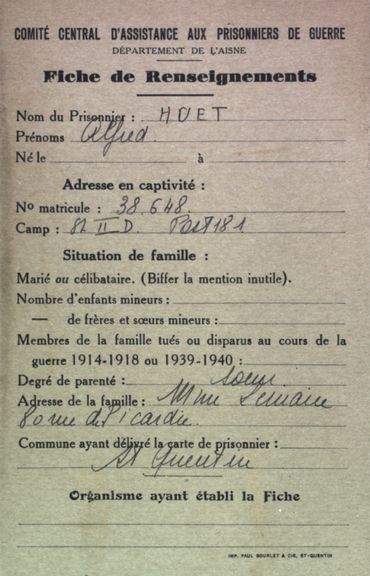 COMITÉ CENTRAL D'ASSISTANCE AUX PRISONNIERS DE GUERRE
DÉPARTEMENT DE L'AISNE
Fiche de Renseignements
Nom du Prisonnier : HUET
Prénoms Alfred.
Né le à
Adresse en captivité :
No matricule : 38.648.
Camp : II D. Post 181
Situation de famille :
Marié ou célibataire. (Biffer la mention inutile).
Nombre d'enfants mineurs :
— de frères et sœurs mineurs :
Membres de la famille tués ou disparus au cours de la
guerre 1914-1918 ou 1939-1940 :
Degré de parenté : soeur
Adresse de la famille : Mme Lemaire
rue de Picardie.
Commune ayant délivré la carte de prisonnier :
St Quentin
Organisme ayant établi la Fiche
IMP. PAUL BOURLET & CIE, ST-QUENTIN